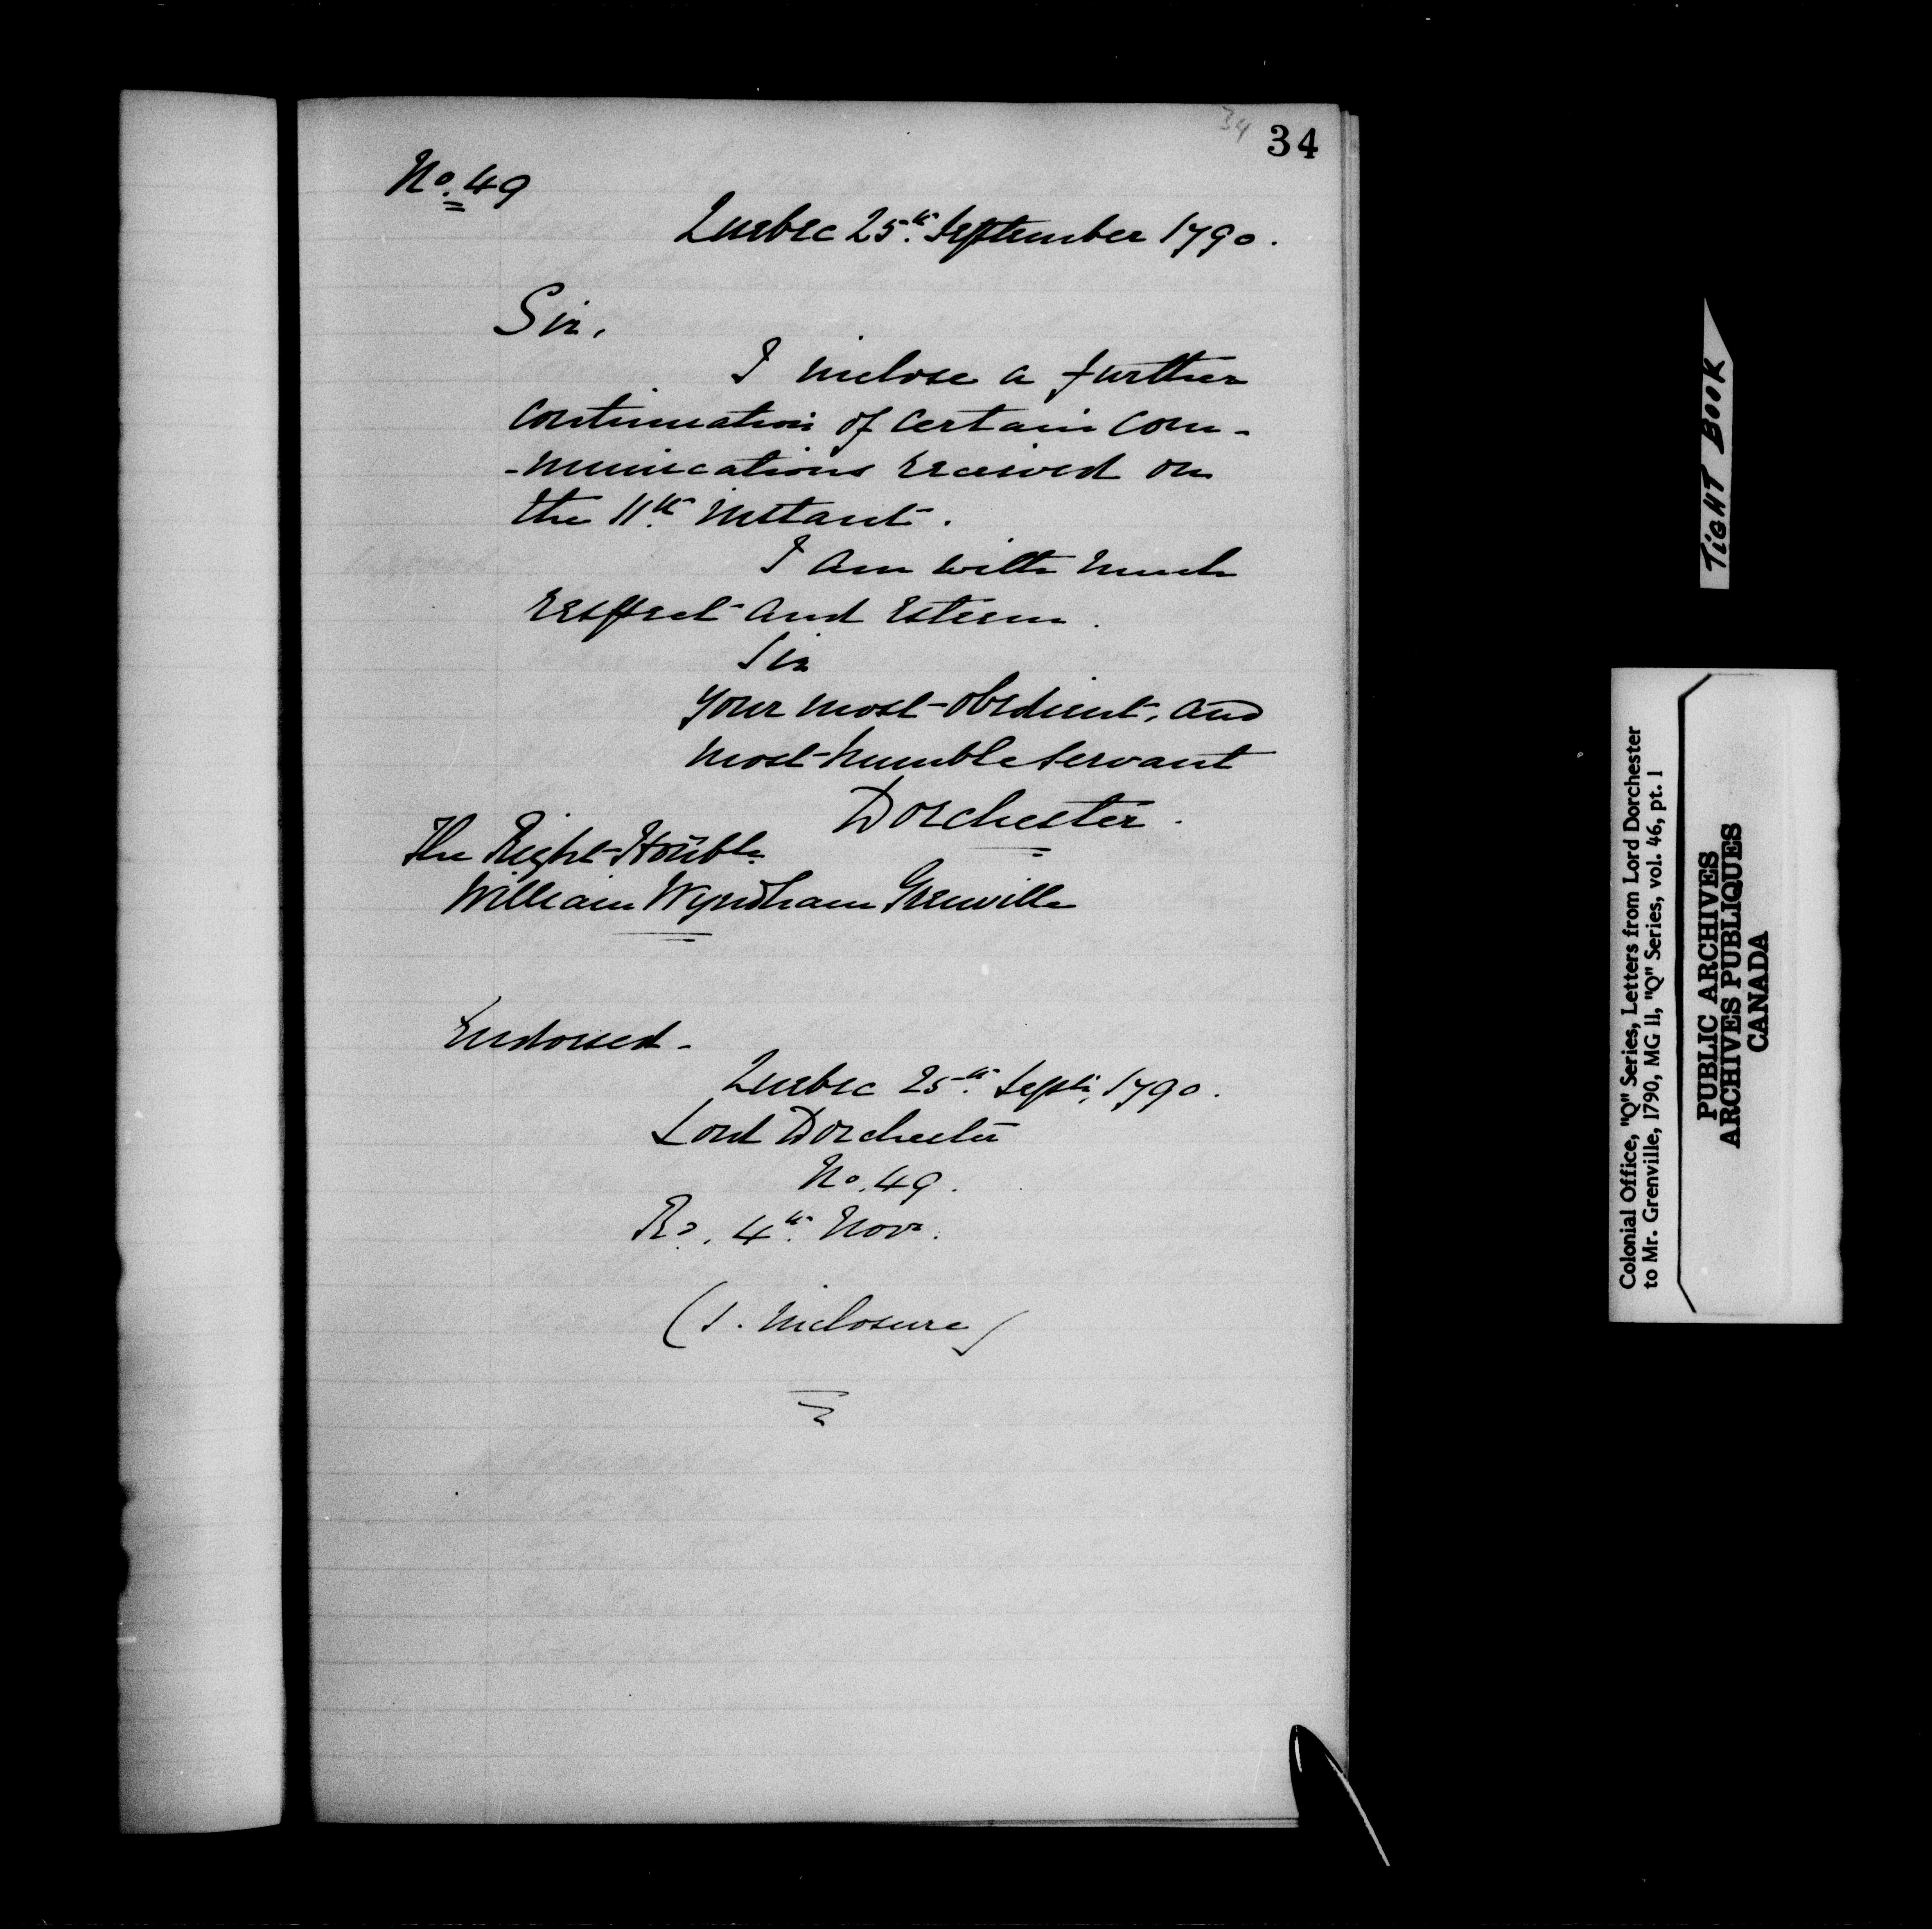 34
34
No. 49
Quebec 25th September 1790.
Sir,
I inclose a further
continuation of certain com-
-munications received on
the 11th instant.
I am with much
respect and esteem.
Sir
your most obedient, and
most humble servant
Dorchester.
The Right Honble
William Wyndham Grenville
Endorsed.
Quebec 25th Septr, 1790.
Lord Dorchester
No. 49.
Rd. 4th Novr.
(1. inclosure)
TIGHT BOOK
Colonial Office, "Q" Series, Letters from Lord Dorchester
to Mr. Grenville, 1790, MG 11, "Q" Series, vol. 46, pt. 1
PUBLIC ARCHIVES
ARCHIVES PUBLIQUES
CANADA